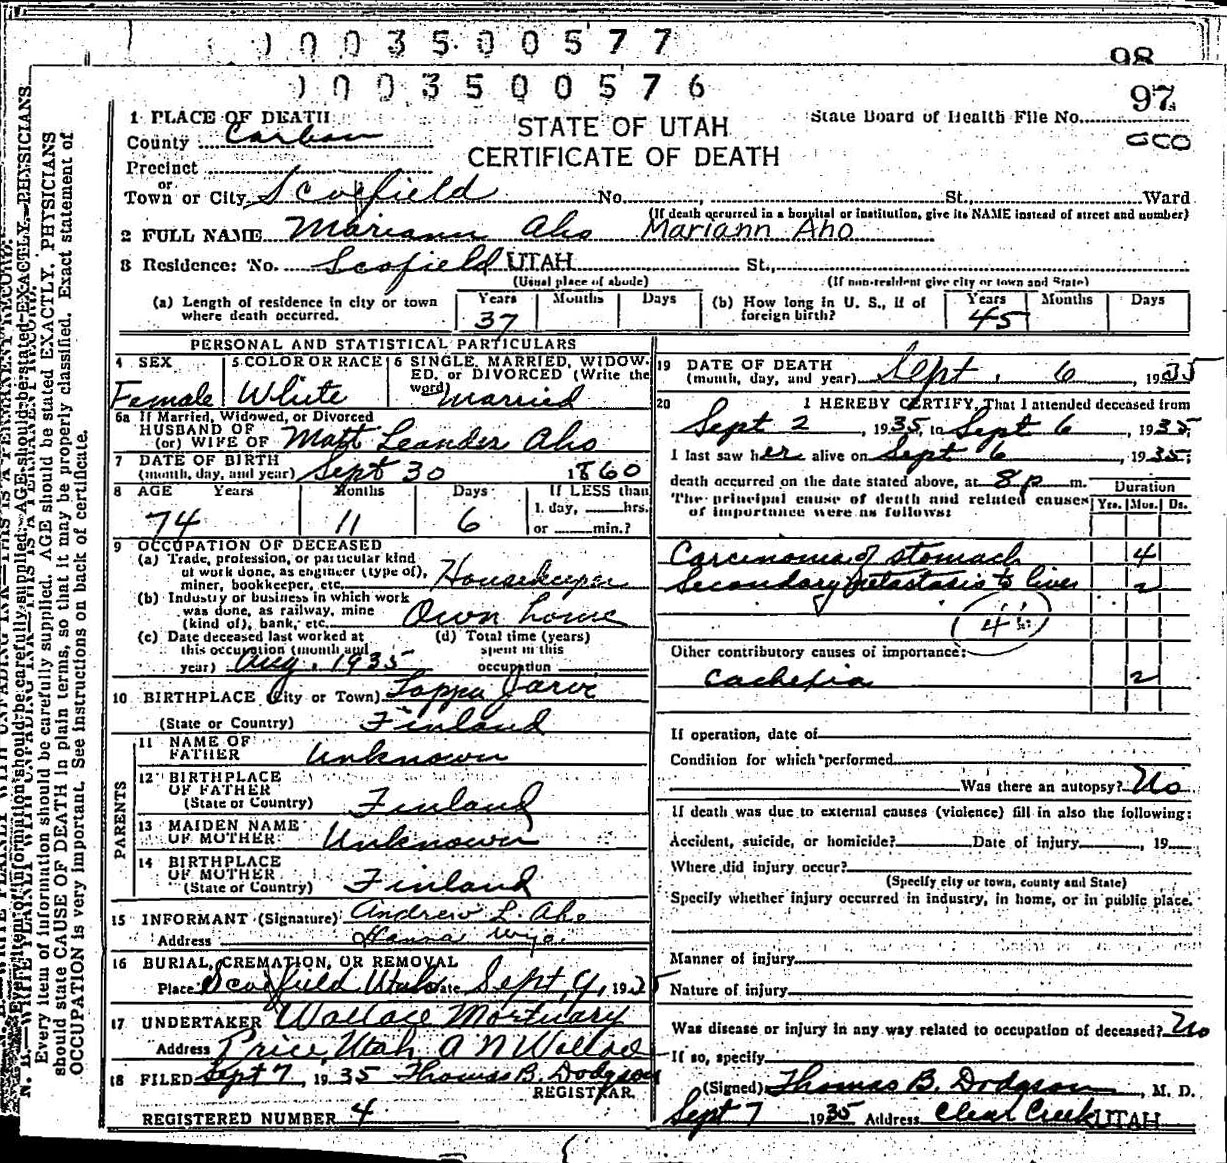 0003500577
98
0003500576
97
1 PLACE OF DEATH
County Carbon
STATE OF UTAH
State Board of Health File No.
CERTIFICATE OF DEATH
Precinct
or
Town or City Scofield No. , St., Ward
(If death occurred in a hospital or institution, give its NAME instead of street and number)
2 FULL NAME Mariann Aho Mariann Aho
3 Residence: No. Scofield UTAH St.,
(Usual place of abode) (If non-resident give city or town and State)
(a) Length of residence in city or town where death occurred. Years 37 Months Days
(b) How long in U. S., if of foreign birth? Years 45 Months Days
PERSONAL AND STATISTICAL PARTICULARS
4 SEX Female
5 COLOR OR RACE White
6 SINGLE, MARRIED, WIDOW-
ED, or DIVORCED (Write the
word) Married
6a If Married, Widowed, or Divorced
HUSBAND OF
(or) WIFE OF Matt Leander Aho
7 DATE OF BIRTH
(month, day, and year) Sept 30 1860
8 AGE Years Months Days If LESS than
1 day, hrs.
74 11 6 or min.?
9 OCCUPATION OF DECEASED
(a) Trade, profession, or particular kind
of work done, as engineer (type of),
miner, bookkeeper, etc. Housekeeper
(b) Industry or business in which work
was done, as railway, mine
(kind of), bank, etc. Own home
(c) Date deceased last worked at
this occupation (month and
year) Aug. 1935
(d) Total time (years)
spent in this
occupation
10 BIRTHPLACE (City or Town) Lappa Jarvi
(State or Country) Finland
PARENTS
11 NAME OF
FATHER Unknown
12 BIRTHPLACE
OF FATHER
(State or Country) Finland
13 MAIDEN NAME
OF MOTHER Unknown
14 BIRTHPLACE
OF MOTHER
(State or Country) Finland
15 INFORMANT (Signature) Andrew L. Aho
Address Hanna Wyo.
16 BURIAL, CREMATION, OR REMOVAL
Place Scofield Utah Date Sept 9, 1935
17 UNDERTAKER Wallace Mortuary
Address Price, Utah A N Wallace
18 FILED Sept 7 1935 Thomas B. Dodgson
REGISTRAR.
REGISTERED NUMBER 4
19 DATE OF DEATH
(month, day, and year) Sept. 6, 1935
20 I HEREBY CERTIFY, That I attended deceased from
Sept 2, 1935, to Sept 6, 1935,
I last saw her alive on Sept 6, 1935;
death occurred on the date stated above, at 8 p m. Duration
The principal cause of death and related causes
of importance were as follows: Yrs. Mos. Ds.
Carcinoma of stomach 4
Secondary metastasis to liver 2
Other contributory causes of importance:
Cachexia 2
If operation, date of
Condition for which performed
Was there an autopsy? No
If death was due to external causes (violence) fill in also the following:
Accident, suicide, or homicide? Date of injury , 19
Where did injury occur?
(Specify city or town, county and State)
Specify whether injury occurred in industry, in home, or in public place.
Manner of injury
Nature of injury
Was disease or injury in any way related to occupation of deceased? No
If so, specify
(Signed) Thomas B. Dodgson, M. D.
Sept 7 1935 Address Clear Creek UTAH
Every item of information should be carefully supplied. AGE should be stated EXACTLY. PHYSICIANS
should state CAUSE OF DEATH in plain terms, so that it may be properly classified. Exact statement of
OCCUPATION is very important. See instructions on back of certificate.